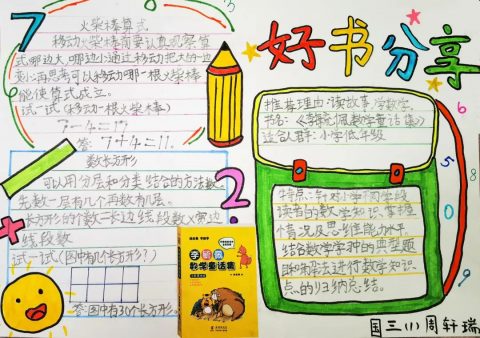 好书分享
火柴棒算式
移动火柴棒需要认真观察算
式哪边大,哪边小通过移动把大的边
变小再思考可以移动哪一根火柴棒
能使算式成立。
试一试(移动一根火柴棒)
7-4=11
答:7+4=11.
数长方形
可以用分层和分类结合的方法数,
先数一层有几个再数有几层。
长方形的个数=长边线段数×宽边
线段数
试一试(图中有几个长方形?)
答:图中有30个长方形。
2.
李毓佩
数学童话集
推荐理由:读故事,学数学。
书名:《李毓佩数学童话集》
适合人群:小学低年级
特点:针对小学不同学段
读者的数学知识掌握
情况及思维能力水平,
结合数学学科中的典型题
目和方法进行数学知识
点的归纳总结。
6
5
8
0
9
国三(1)周轩瑞